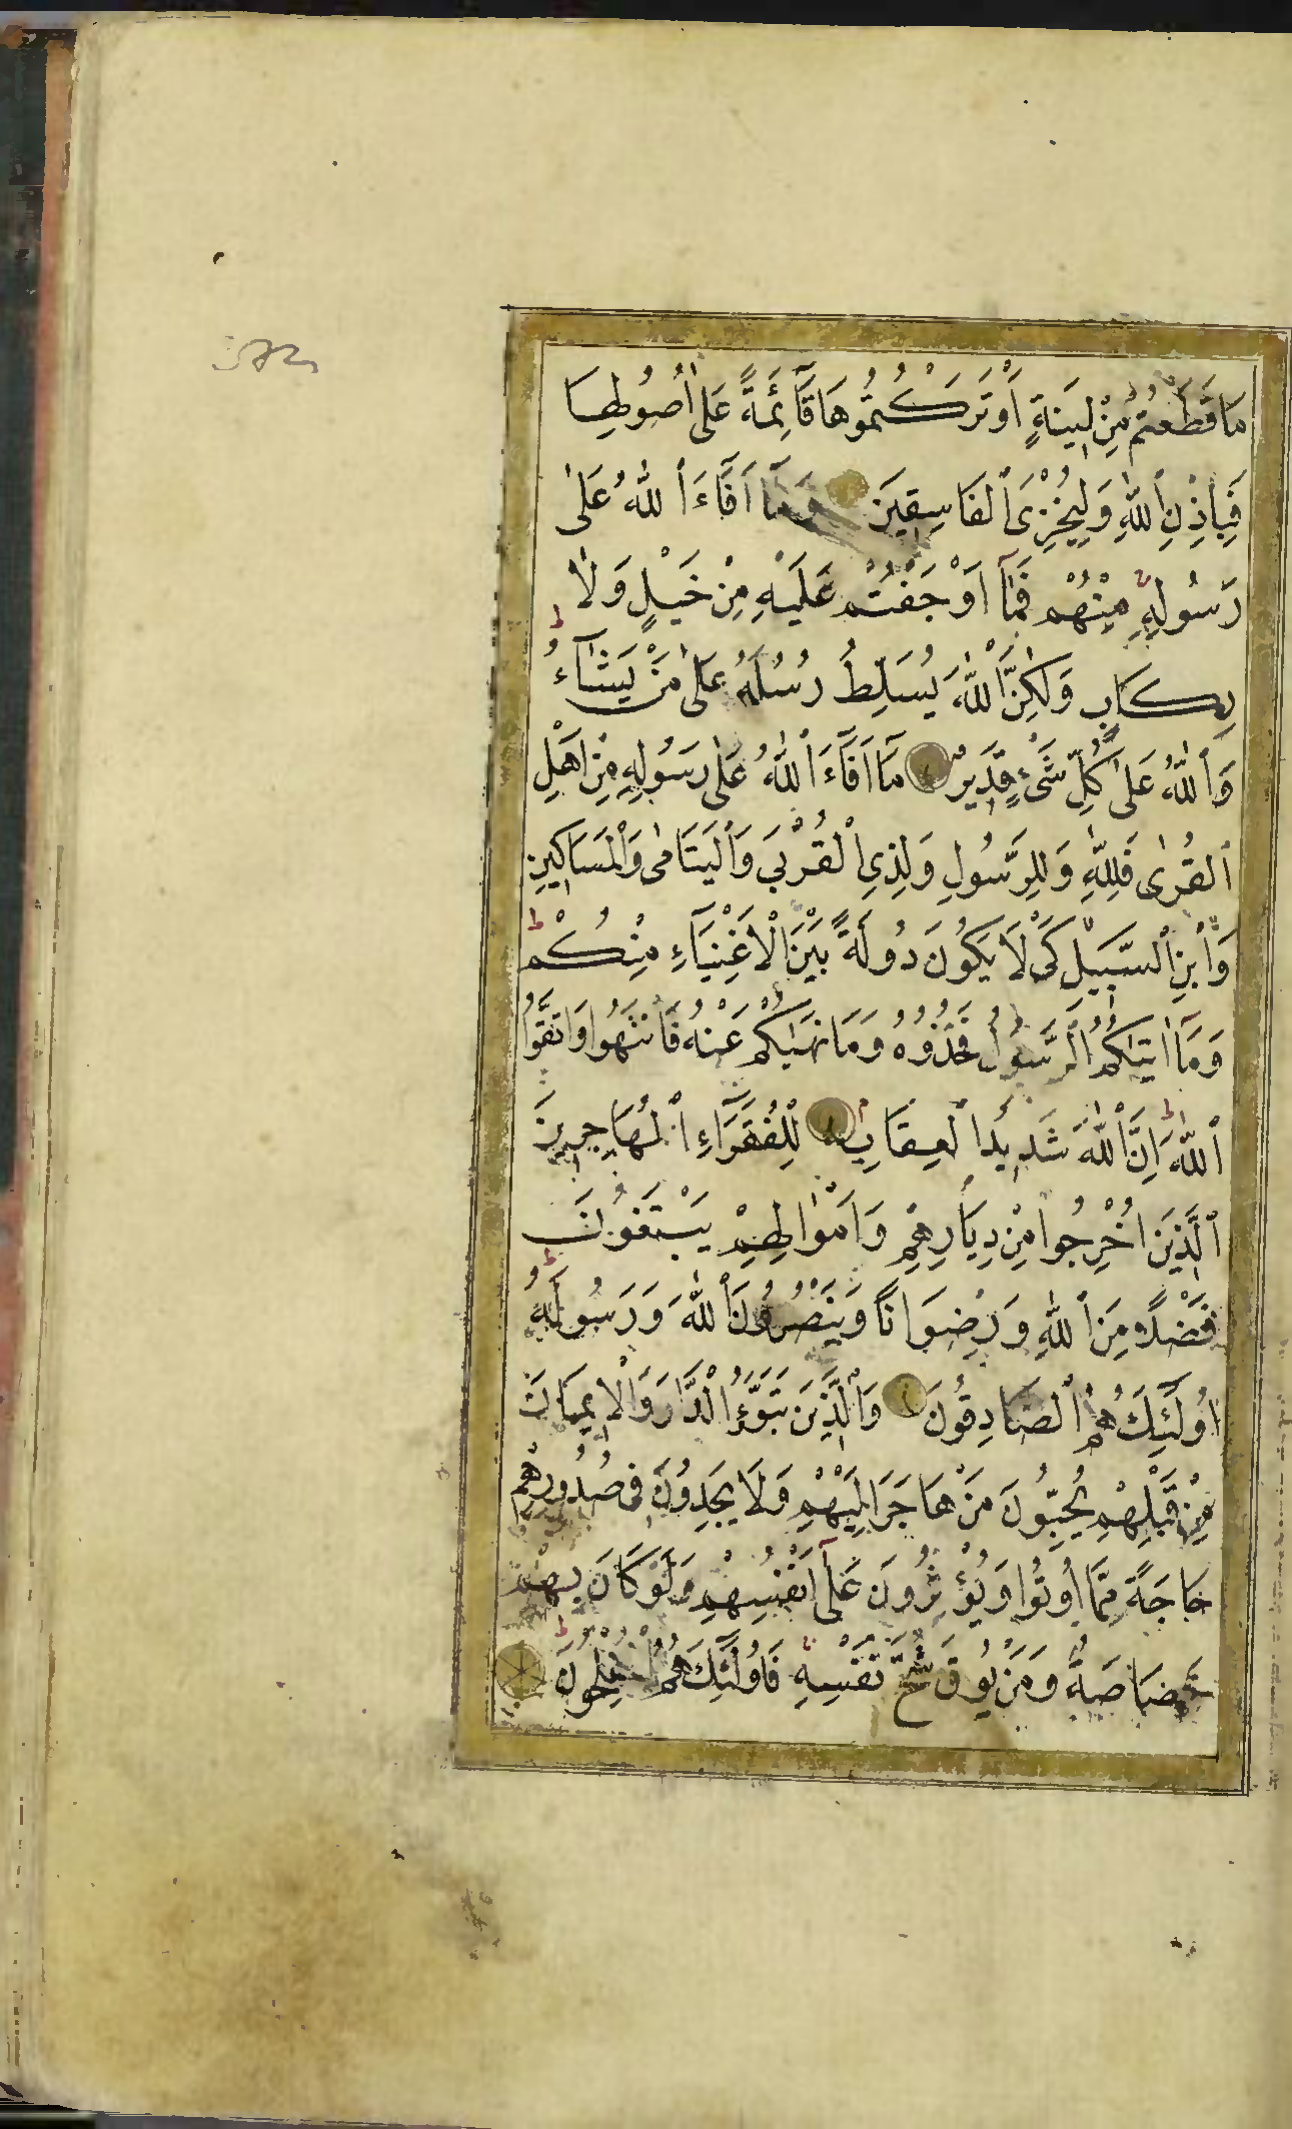 مَا قَطَعْتُمْ مِنْ لِينَةٍ أَوْ تَرَكْتُمُوهَا قَآئِمَةً عَلٰى اُصُولِهَا
فَبِاِذْنِ ٱللّٰهِ وَلِيُخْزِىَ ٱلفَاسِقِينَ وَمَآ اَفَآءَ ٱللّٰهُ عَلٰى
رَسُولِهِ مِنْهُمْ فَمَآ اَوْجَفْتُمْ عَلَيْهِ مِنْ خَيْلٍ وَلَا
رِكَابٍ وَلٰكِنَّ ٱللّٰهَ يُسَلِّطُ رُسُلَهُ عَلٰى مَنْ يَشَآءُ
وَٱللّٰهُ عَلٰى كُلِّ شَىْءٍ قَدِيرٌ مَآ اَفَآءَ ٱللّٰهُ عَلٰى رَسُولِهِ مِنْ اَهْلِ
ٱلقُرٰى فَلِلّٰهِ وَلِلرَّسُولِ وَلِذِى ٱلْقُرْبَى وَٱلْيَتَامٰى وَٱلْمَسَاكِينِ
وَٱبْنِ ٱلسَّبِيلِ كَىْ لَا يَكُونَ دُولَةً بَيْنَ ٱلْاَغْنِيَآءِ مِنْكُمْ
وَمَآ اٰتٰيكُمُ ٱلرَّسُولُ فَخُذُوهُ وَمَا نَهٰيكُمْ عَنْهُ فَانْتَهُوا وَاتَّقُوا
ٱللّٰهَ اِنَّ ٱللّٰهَ شَدِيدُ ٱلْعِقَابِ لِلْفُقَرَآءِ ٱلْمُهَاجِرِينَ
ٱلَّذِينَ اُخْرِجُوا مِنْ دِيَارِهِمْ وَاَمْوَالِهِمْ يَبْتَغُونَ
فَضْلًا مِنَ ٱللّٰهِ وَرِضْوَانًا وَيَنْصُرُونَ ٱللّٰهَ وَرَسُولَهُ
اُولٰٓئِكَ هُمُ ٱلصَّادِقُونَ وَٱلَّذِينَ تَبَوَّءُوا ٱلْدَّارَ وَٱلْاِيمَانَ
مِنْ قَبْلِهِمْ يُحِبُّونَ مَنْ هَاجَرَ اِلَيْهِمْ وَلَا يَجِدُونَ فِى صُدُورِهِمْ
حَاجَةً مِمَّا اُوتُوا وَيُؤْثِرُونَ عَلٰٓى اَنْفُسِهِمْ وَلَوْ كَانَ بِهِمْ
خَصَاصَةٌ وَمَنْ يُوقَ شُحَّ نَفْسِهِ فَاُولٰٓئِكَ هُمُ ٱلْمُفْلِحُونَ